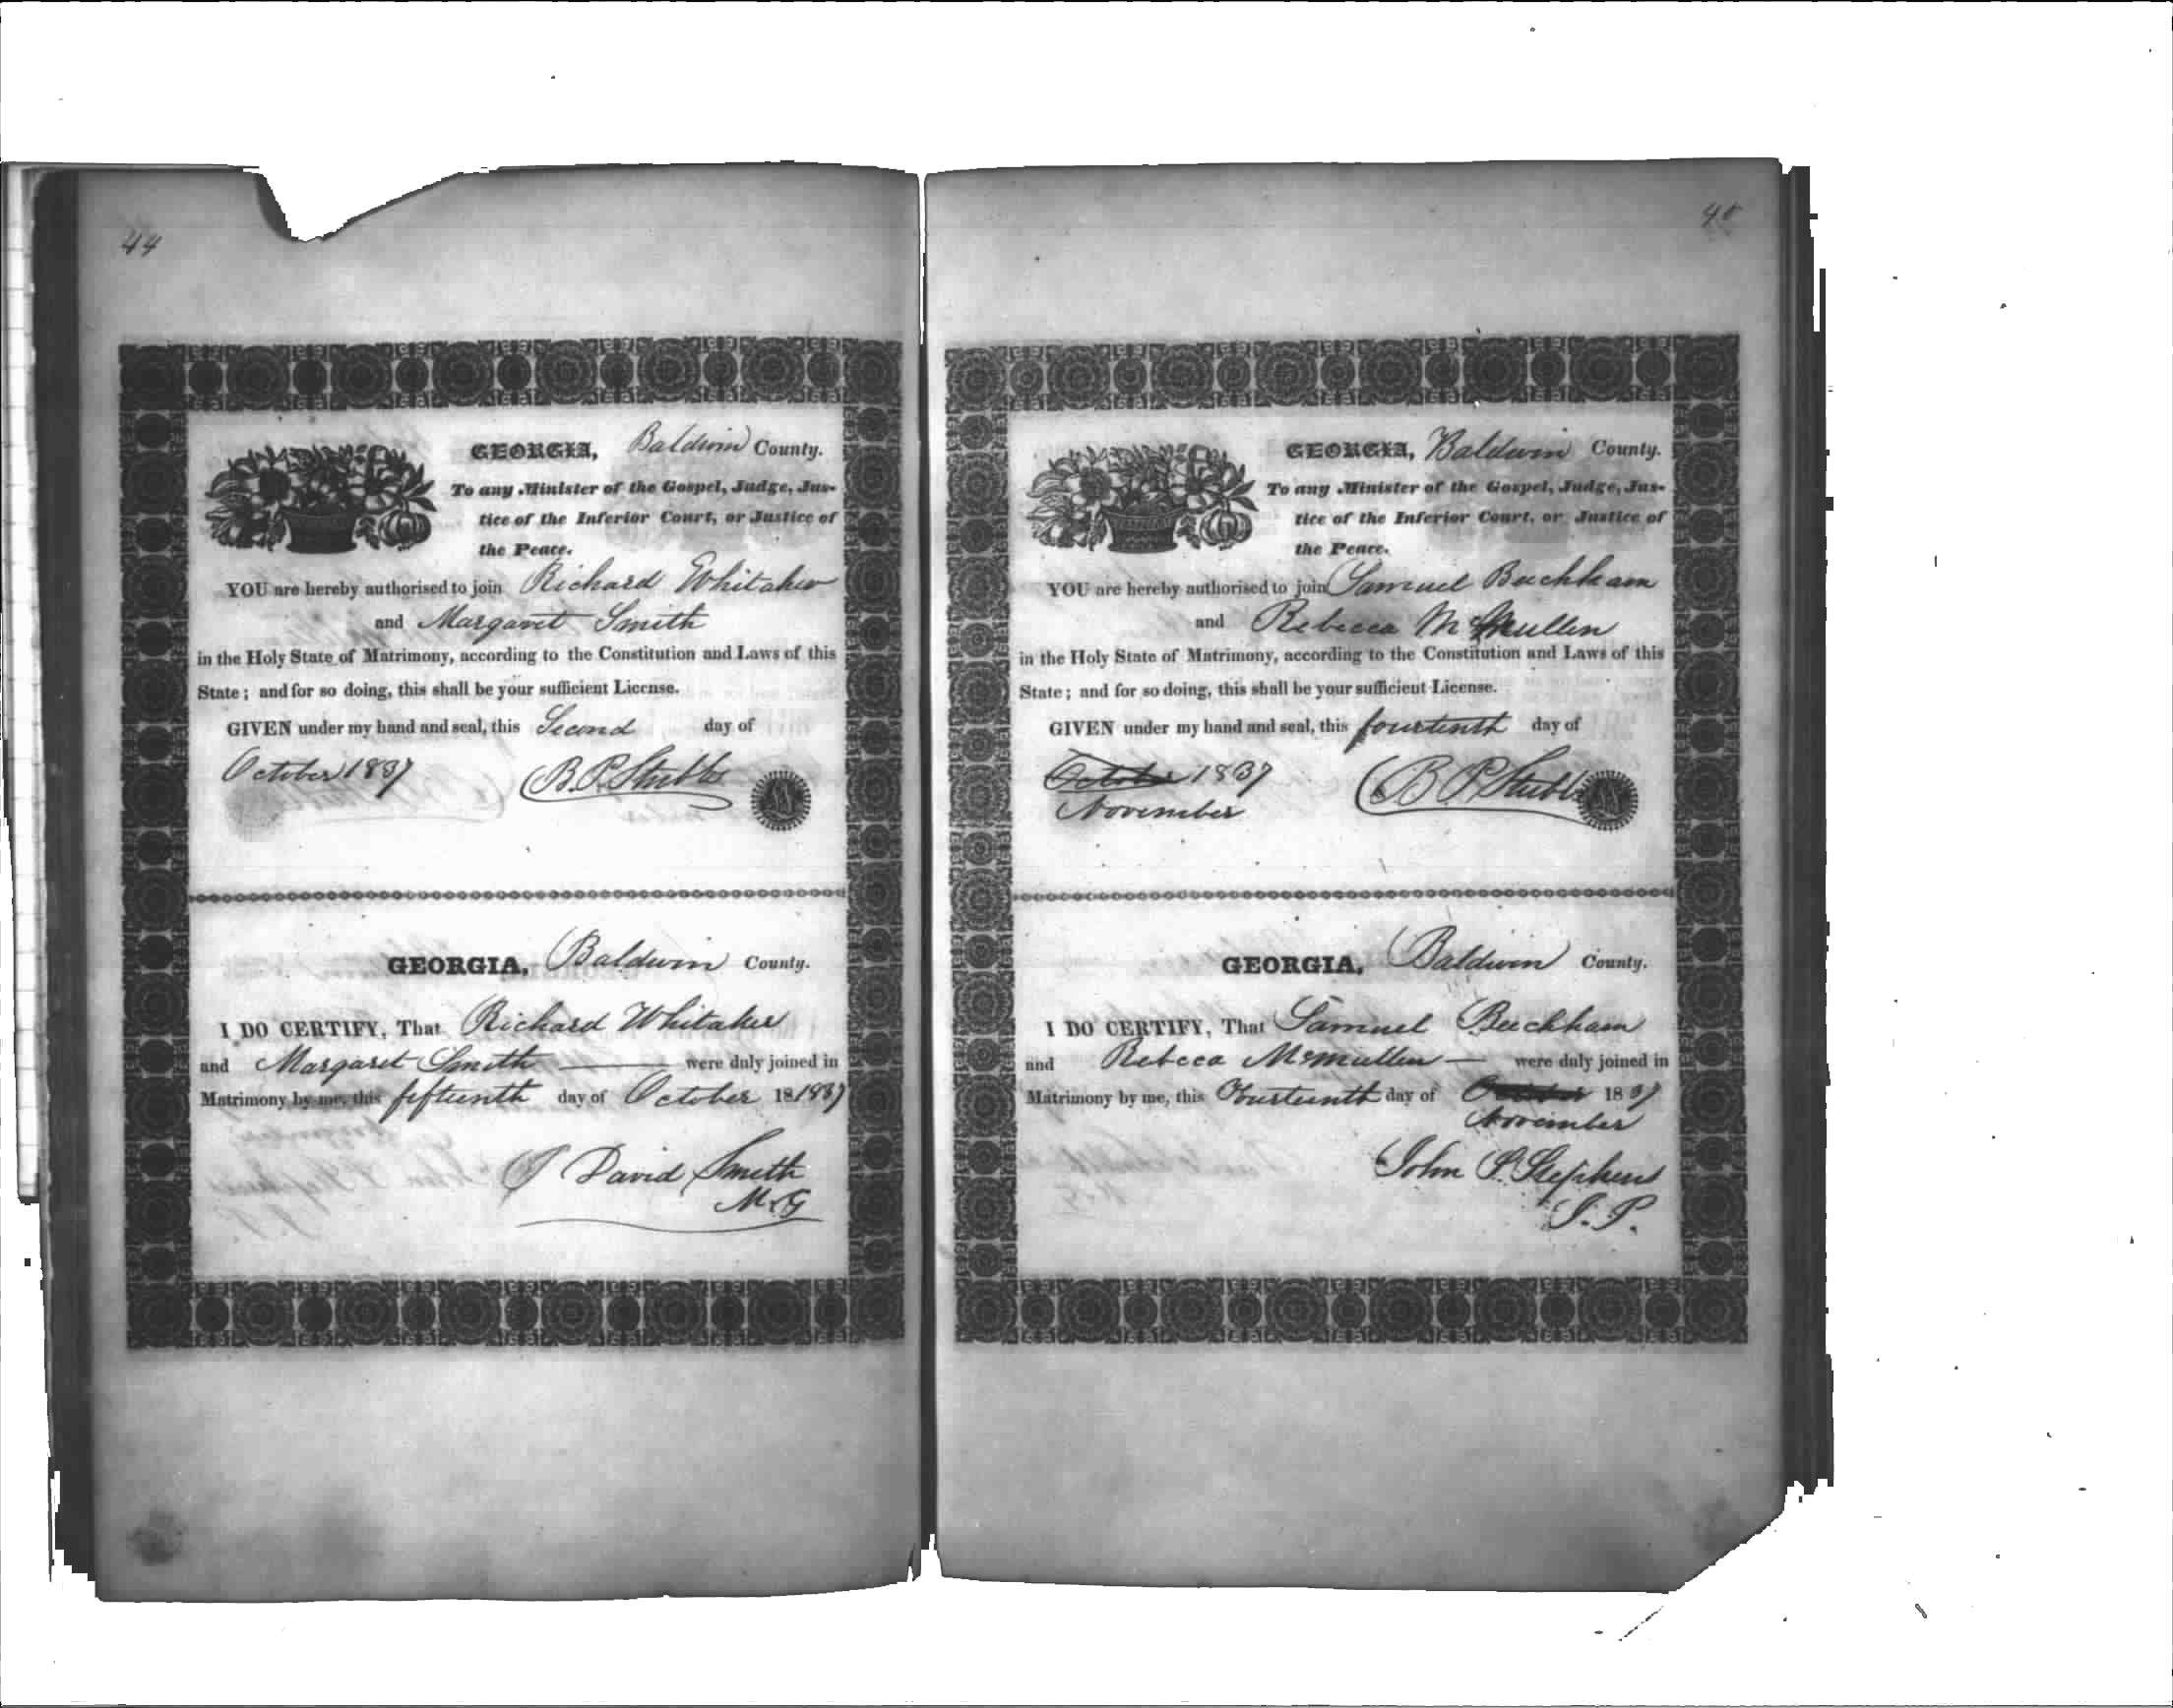 44
GEORGIA, Baldwin County.
To any Minister of the Gospel, Judge, Jus-
tice of the Inferior Court, or Justice of
the Peace.
YOU are hereby authorised to join Richard Whitaker
and Margaret Smith
in the Holy State of Matrimony, according to the Constitution and Laws of this
State; and for so doing, this shall be your sufficient License.
GIVEN under my hand and seal, this Second day of
October 1837 B. P. Stubbs
GEORGIA, Baldwin County.
I DO CERTIFY, That Richard Whitaker
and Margaret Smith were duly joined in
Matrimony by me, this fifteenth day of October 181837
J David Smith
M.G
45
GEORGIA, Baldwin County.
To any Minister of the Gospel, Judge, Jus-
tice of the Inferior Court, or Justice of
the Peace.
YOU are hereby authorised to join Samuel Beckham
and Rebecca McMullen
in the Holy State of Matrimony, according to the Constitution and Laws of this
State; and for so doing, this shall be your sufficient License.
GIVEN under my hand and seal, this fourtenth day of
October 1837 B P Stubbs
November
GEORGIA, Baldwin County.
I DO CERTIFY, That Samuel Beckham
and Rebecca McMullen were duly joined in
Matrimony by me, this Fourteenth day of October 1837
November
John S. Stephens
J. P.